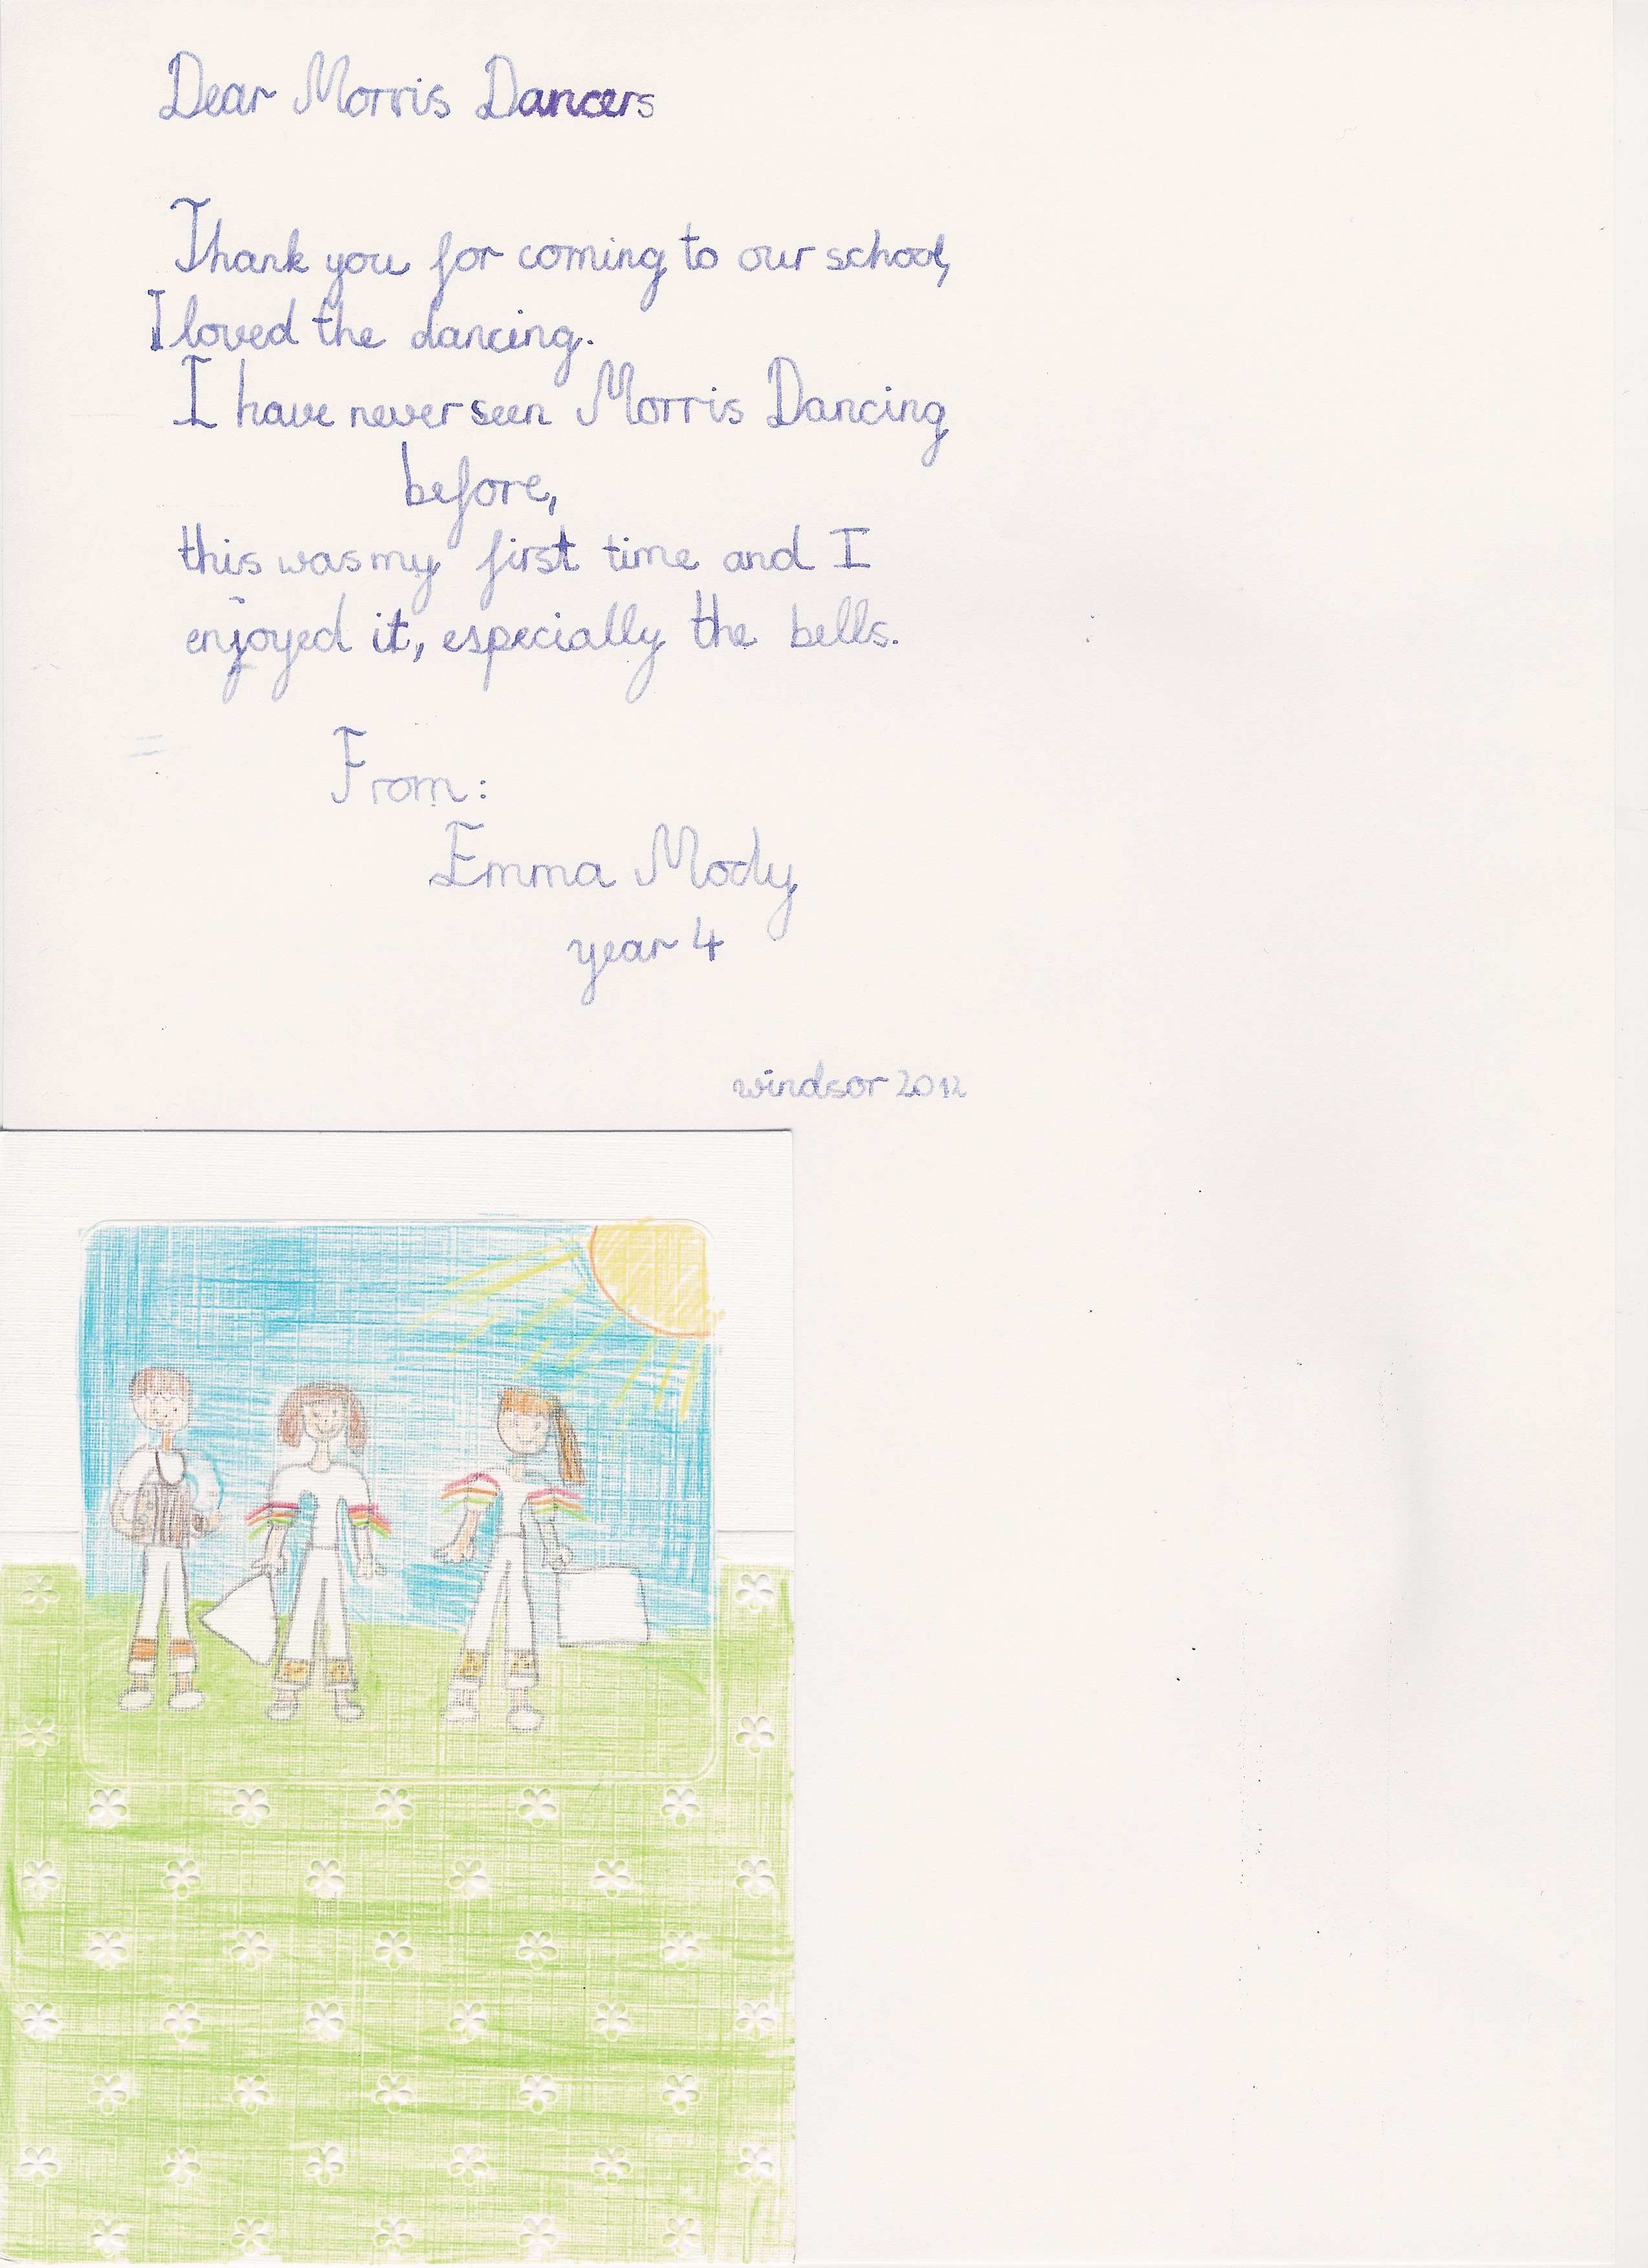 Dear Morris Dancers
Thank you for coming to our school,
I loved the dancing.
I have never seen Morris Dancing
before,
this was my first time and I
enjoyed it, especially the bells.
From:
Emma Mody
year 4
windsor 2012